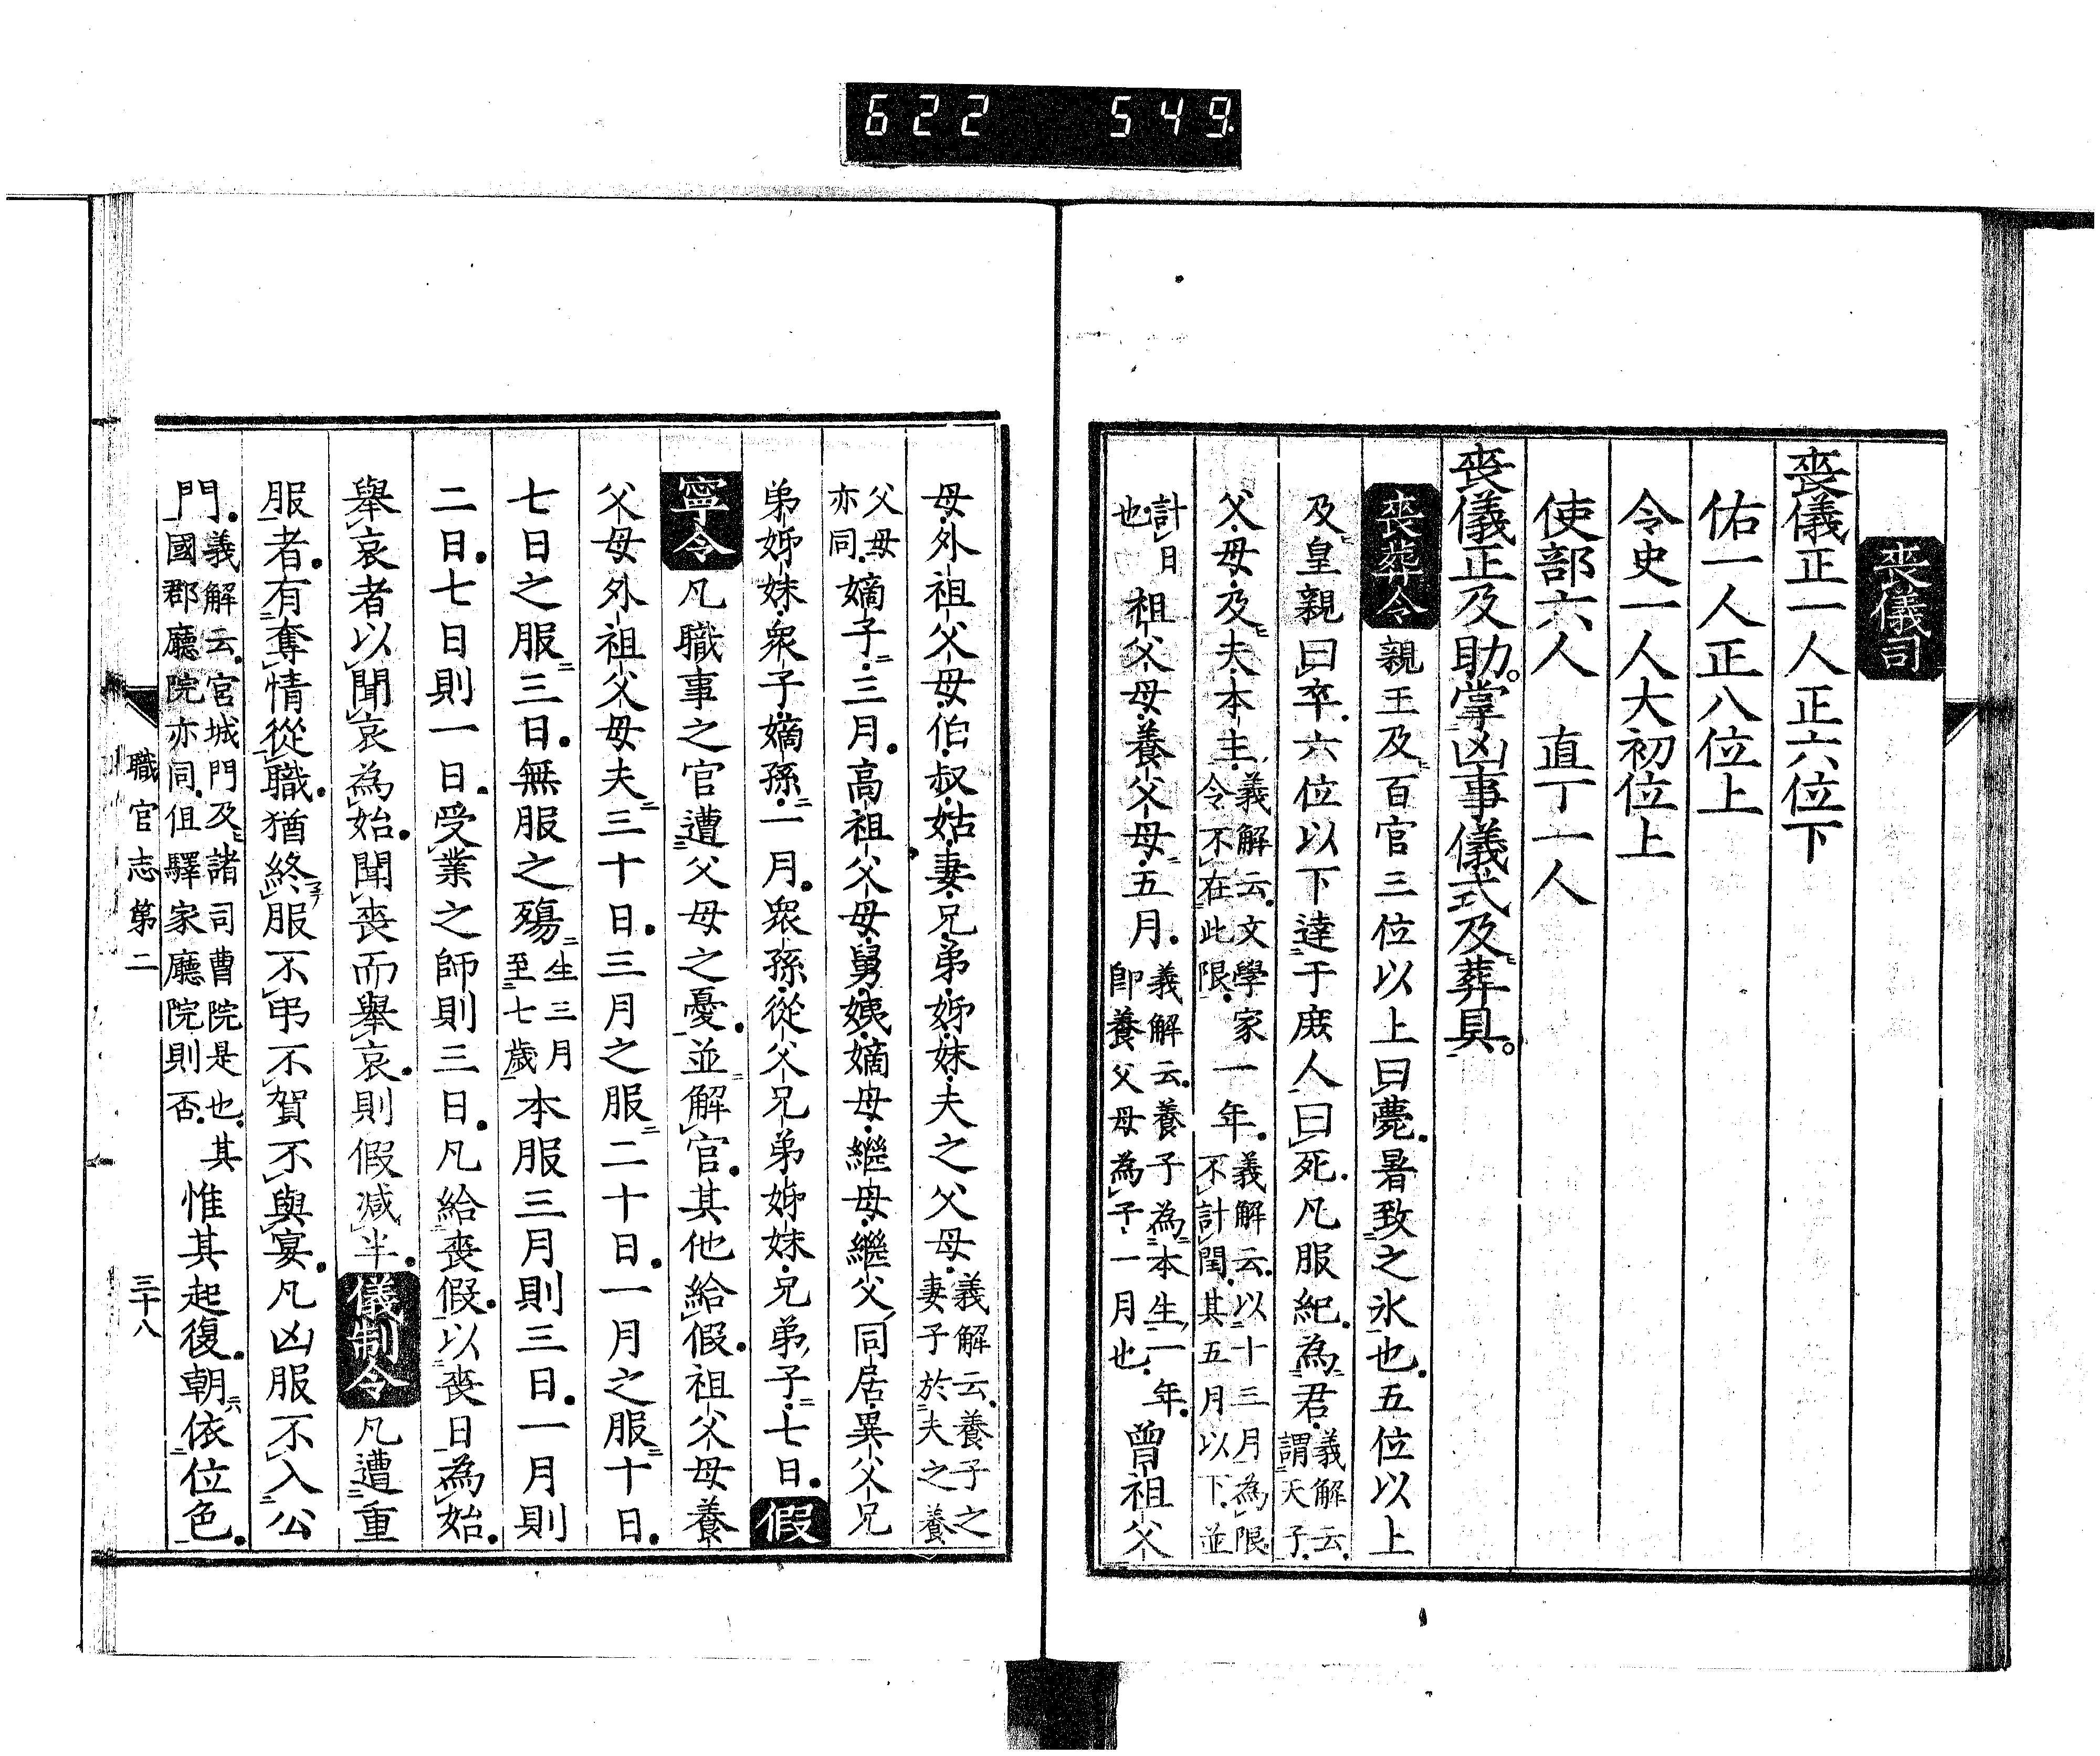 622 549
喪儀司
喪儀正一人正六位下
佑一人正八位上
令史一人大初位上
使部六人 直丁一人
喪儀正及助。掌凶事儀式及葬具。
喪葬令親王及百官三位以上曰薨。暑致之氷也。五位以上
及皇親曰卒。六位以下達于庶人曰死。凡服紀。為君。義解云。謂天子。
父母及夫本主。義解云。文學家令不在此限。一年。義解云。以十三月為限。不計閏。其五月以下。並
計日也。祖父母養父母五月。義解云。養子為本生一年。即養父母為子一月也。曾祖父
母外祖父母伯叔姑妻兄弟姊妹夫之父母。義解云。養子之妻子於夫之養
父母亦同。嫡子三月。高祖父母舅姨嫡母繼母繼父同居異父兄
弟姊妹衆子嫡孫一月。衆孫從父兄弟姊妹兄弟子七日。假
寧令凡職事之官遭父母之憂。並解官。其他給假。祖父母養
父母外祖父母夫三十日。三月之服二十日。一月之服十日。
七日之服三日。無服之殤生三月至七歲本服三月則三日。一月則
二日。七日則一日。受業之師則三日。凡給喪假。以喪日為始。
舉哀者以聞哀為始。聞喪而舉哀。則假減半。儀制令凡遭重
服者。有奪情從職。猶終服不弔不賀不與宴。凡凶服不入公
門。義解云。宮城門及諸司曹院是也。其國郡廳院亦同。但驛家廳院則否。惟其起復。朝依位色。
職官志第二 三十八